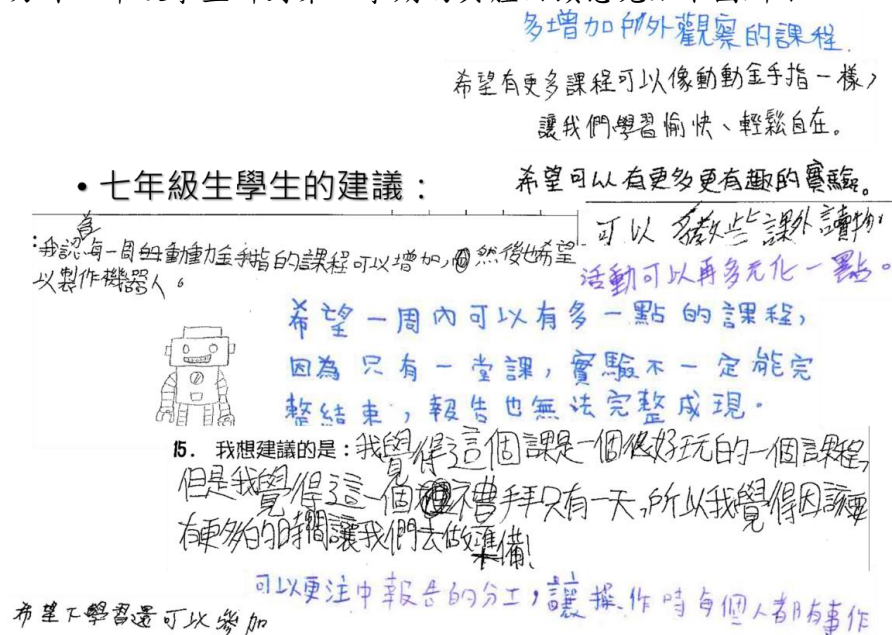 多增加戶外觀察的課程.
希望有更多課程可以像動動金手指一樣,
讓我們學習愉快、輕鬆自在。
• 七年級生學生的建議:
希望可以有更多更有趣的實驗。
可以多教些課外讀物.
:我認為每一周的動動金手指的課程可以增加,然後也希望
以製作機器人。
活動可以再多元化一點。
希望一周內可以有多一點的課程,
因為只有一堂課,實驗不一定能完
整結束,報告也無法完整成現。
15. 我想建議的是:我覺得這個課是一個很好玩的一個課程,
但是我覺得這一個禮拜只有一天,所以我覺得因該要
有更多的時間讓我們去做準備!
可以更注中報告的分工,讓操作時每個人都有事作
希望下學習還可以參加